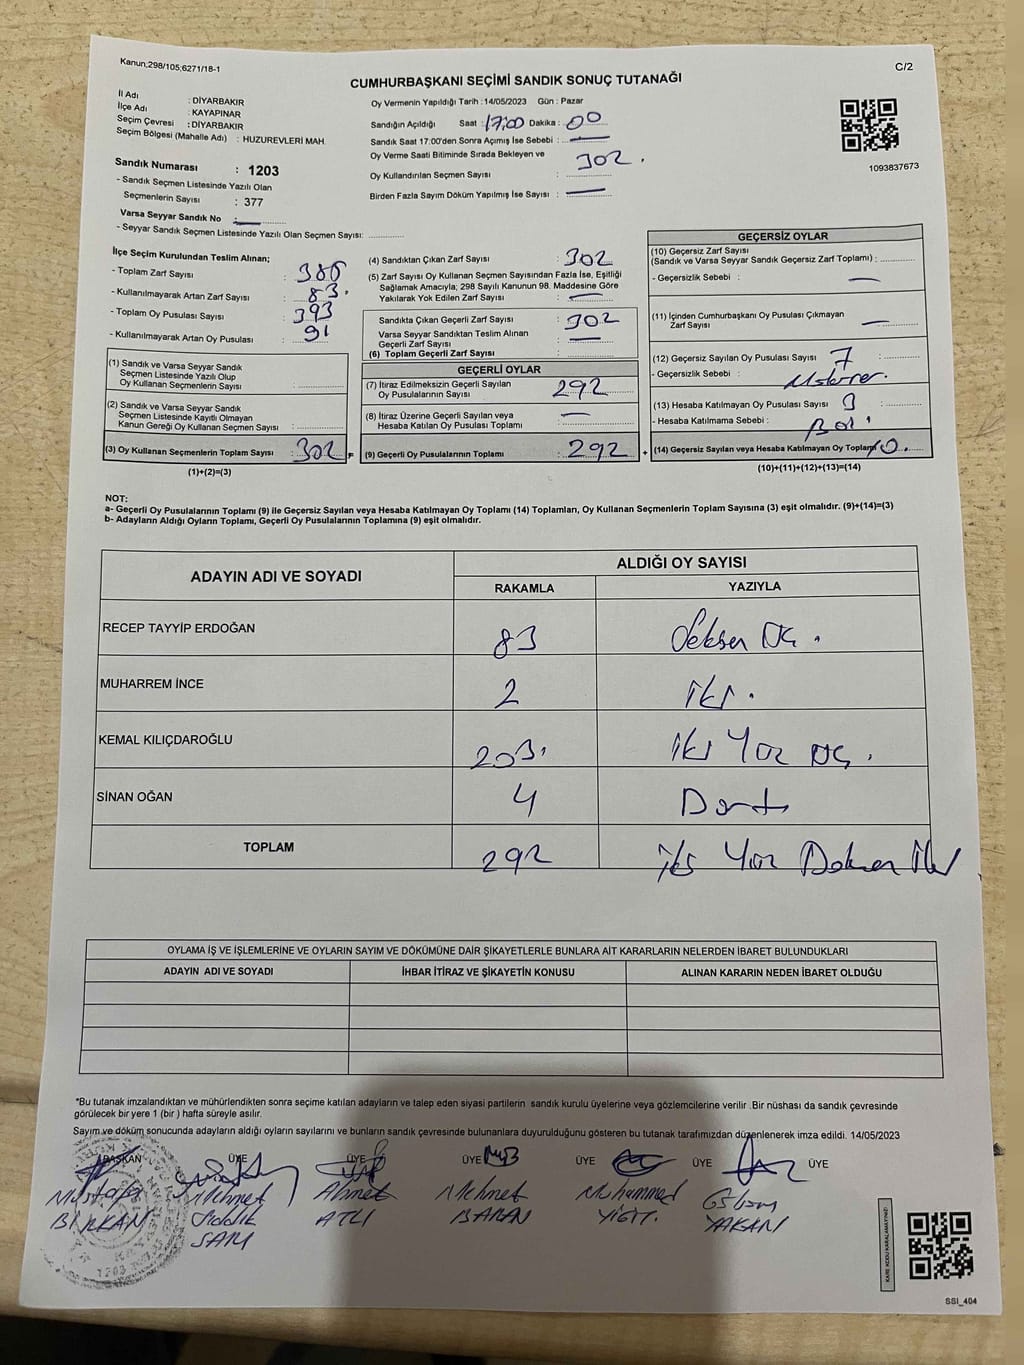 Kanun;298/105;6271/18-1
C/2
CUMHURBAŞKANI SEÇİMİ SANDIK SONUÇ TUTANAĞI
İl Adı : DİYARBAKIR
İlçe Adı : KAYAPINAR
Seçim Çevresi : DİYARBAKIR
Seçim Bölgesi (Mahalle Adı) : HUZUREVLERİ MAH.
Sandık Numarası : 1203
- Sandık Seçmen Listesinde Yazılı Olan
Seçmenlerin Sayısı : 377
Varsa Seyyar Sandık No : —
- Seyyar Sandık Seçmen Listesinde Yazılı Olan Seçmen Sayısı:
Oy Vermenin Yapıldığı Tarih : 14/05/2023 Gün : Pazar
Sandığın Açıldığı Saat : 17;00 Dakika : 00
Sandık Saat 17:00'den Sonra Açımış İse Sebebi : —
Oy Verme Saati Bitiminde Sırada Bekleyen ve
Oy Kullandırılan Seçmen Sayısı : 302.
Birden Fazla Sayım Döküm Yapılmış İse Sayısı : —
1093837673
İlçe Seçim Kurulundan Teslim Alınan;
- Toplam Zarf Sayısı :
- Kullanılmayarak Artan Zarf Sayısı : 83.
- Toplam Oy Pusulası Sayısı : 393
- Kullanılmayarak Artan Oy Pusulası : 91
(1) Sandık ve Varsa Seyyar Sandık
Seçmen Listesinde Yazılı Olup
Oy Kullanan Seçmenlerin Sayısı :
(2) Sandık ve Varsa Seyyar Sandık
Seçmen Listesinde Kayıtlı Olmayan
Kanun Gereği Oy Kullanan Seçmen Sayısı :
(3) Oy Kullanan Seçmenlerin Toplam Sayısı : 302 =
(1)+(2)=(3)
(4) Sandıktan Çıkan Zarf Sayısı : 302
(5) Zarf Sayısı Oy Kullanan Seçmen Sayısından Fazla İse, Eşitliği
Sağlamak Amacıyla; 298 Sayılı Kanunun 98. Maddesine Göre
Yakılarak Yok Edilen Zarf Sayısı : —
Sandıkta Çıkan Geçerli Zarf Sayısı : 302
Varsa Seyyar Sandıktan Teslim Alınan
Geçerli Zarf Sayısı : —
(6) Toplam Geçerli Zarf Sayısı :
GEÇERLİ OYLAR
(7) İtiraz Edilmeksizin Geçerli Sayılan
Oy Pusulalarının Sayısı : 292
(8) İtiraz Üzerine Geçerli Sayılan veya
Hesaba Katılan Oy Pusulası Toplamı : —
(9) Geçerli Oy Pusulalarının Toplamı : 292 +
GEÇERSİZ OYLAR
(10) Geçersiz Zarf Sayısı
(Sandık ve Varsa Seyyar Sandık Geçersiz Zarf Toplamı) :
- Geçersizlik Sebebi : —
(11) İçinden Cumhurbaşkanı Oy Pusulası Çıkmayan
Zarf Sayısı : —
(12) Geçersiz Sayılan Oy Pusulası Sayısı : 7
- Geçersizlik Sebebi :
(13) Hesaba Katılmayan Oy Pusulası Sayısı : 3
- Hesaba Katılmama Sebebi : Boş
(14) Geçersiz Sayılan veya Hesaba Katılmayan Oy Toplamı 10.
(10)+(11)+(12)+(13)=(14)
NOT:
a- Geçerli Oy Pusulalarının Toplamı (9) ile Geçersiz Sayılan veya Hesaba Katılmayan Oy Toplamı (14) Toplamları, Oy Kullanan Seçmenlerin Toplam Sayısına (3) eşit olmalıdır. (9)+(14)=(3)
b- Adayların Aldığı Oyların Toplamı, Geçerli Oy Pusulalarının Toplamına (9) eşit olmalıdır.
ADAYIN ADI VE SOYADI
ALDIĞI OY SAYISI
RAKAMLA YAZIYLA
RECEP TAYYİP ERDOĞAN 83 Seksen Üç.
MUHARREM İNCE 2 iki.
KEMAL KILIÇDAROĞLU 203. iki Yüz Üç.
SİNAN OĞAN 4 Dört
TOPLAM 292 iki Yüz Doksan iki
OYLAMA İŞ VE İŞLEMLERİNE VE OYLARIN SAYIM VE DÖKÜMÜNE DAİR ŞİKAYETLERLE BUNLARA AİT KARARLARIN NELERDEN İBARET BULUNDUKLARI
ADAYIN ADI VE SOYADI İHBAR İTİRAZ VE ŞİKAYETİN KONUSU ALINAN KARARIN NEDEN İBARET OLDUĞU
*Bu tutanak imzalandıktan ve mühürlendikten sonra seçime katılan adayların ve talep eden siyasi partilerin sandık kurulu üyelerine veya gözlemcilerine verilir .Bir nüshası da sandık çevresinde
görülecek bir yere 1 (bir ) hafta süreyle asılır.
Sayım ve döküm sonucunda adayların aldığı oyların sayılarını ve bunların sandık çevresinde bulunanlara duyurulduğunu gösteren bu tutanak tarafımızdan düzenlenerek imza edildi. 14/05/2023
BAŞKAN ÜYE ÜYE ÜYE ÜYE ÜYE ÜYE
Mustafa Mehmet Ahmet Mehmet Muhammed
BİRKAN Sıddık ATLI BARAN YİĞİT. YAKAN
SARI
1203
KARE KODU KARALAMAYINIZ!
SSI_404